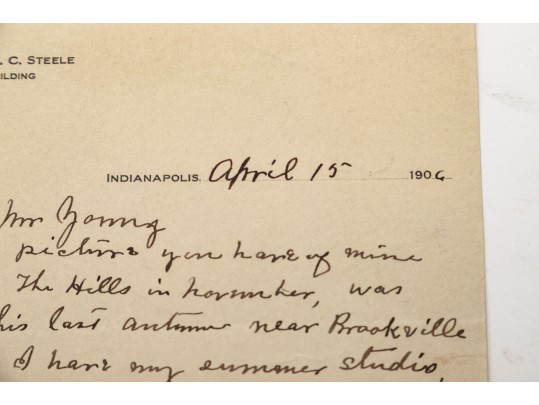 . C. STEELE
ILDING
INDIANAPOLIS. April 15 1906
Mr Young
picture you have of mine
The Hills in november, was
his last autumn near Brookville
I have my summer studio,